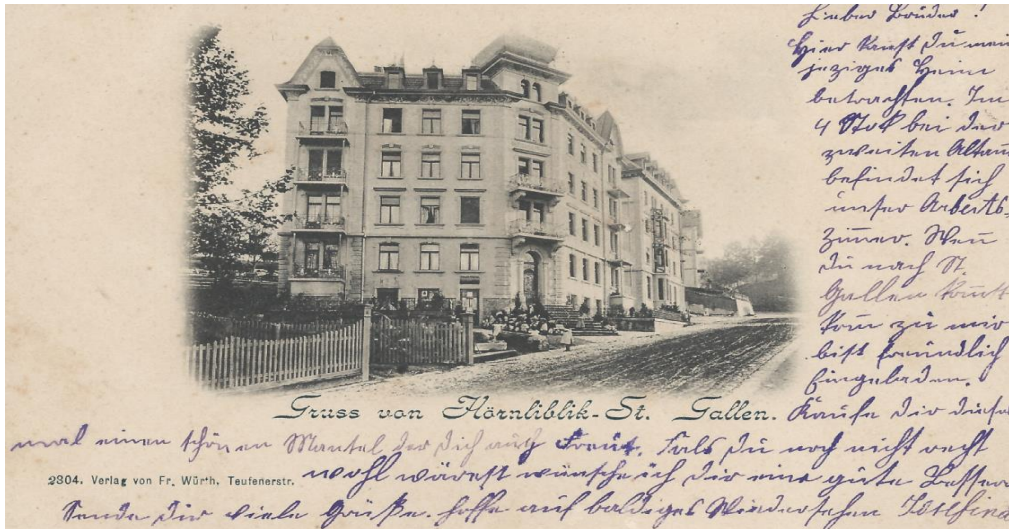 Lieber Bruder!
Hier kanst Du mein
jeziges Heim
betrachten. Im
4 Stok bei der
zweiten Altan
befindet sich
unser Arbeits-
zimer. Wen
Du nach St
Gallen komst
kom zu mir
bist freundlich
Eingeladen.
Gruss von Hörnliblik-St. Gallen.
Kaufe dir dies
mal einen schönen Mantel der dich auch Freut. Fals Du noch nicht recht
2304. Verlag von Fr. Würth. Teufenerstr.
wohl wärest wünsche ich dir eine gute Besser
Sende Dir viele Grüße. hoffe auf baldiges Wiedersehen